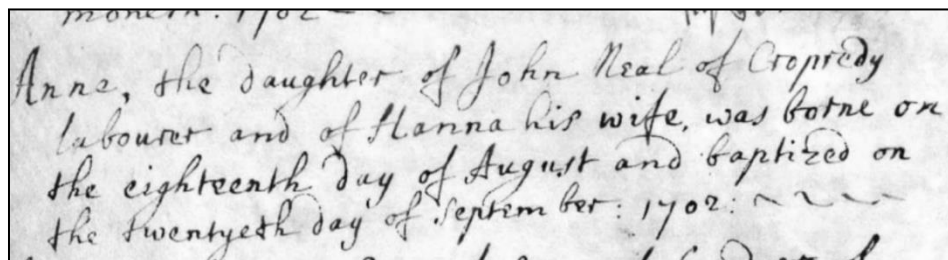 moneth. 1702
Anne, the daughter of John Neal of Cropredy
labourer and of Hanna his wife, was borne on
the eighteenth day of August and baptized on
the twentyeth day of September: 1702: